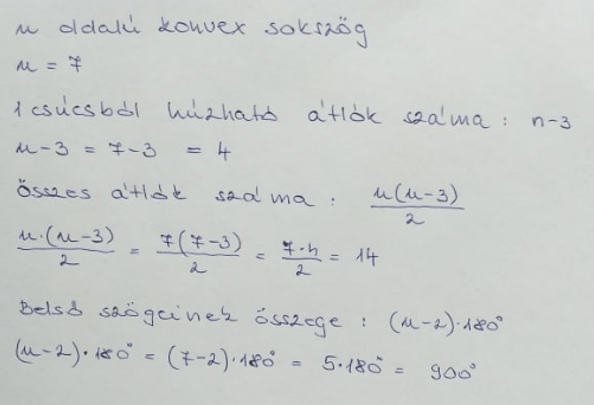 n oldalú konvex sokszög
n = 7
1 csúcsból húzható átlók száma : n-3
n-3 = 7-3 = 4
összes átlók száma : n(n-3)/2
n·(n-3)/2 = 7(7-3)/2 = 7·4/2 = 14
Belső szögeinek összege : (n-2)·180°
(n-2)·180° = (7-2)·180° = 5·180° = 900°